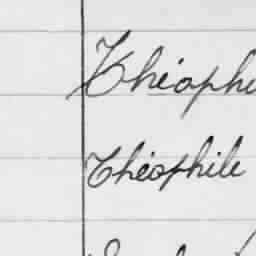 Théophi
Théophile